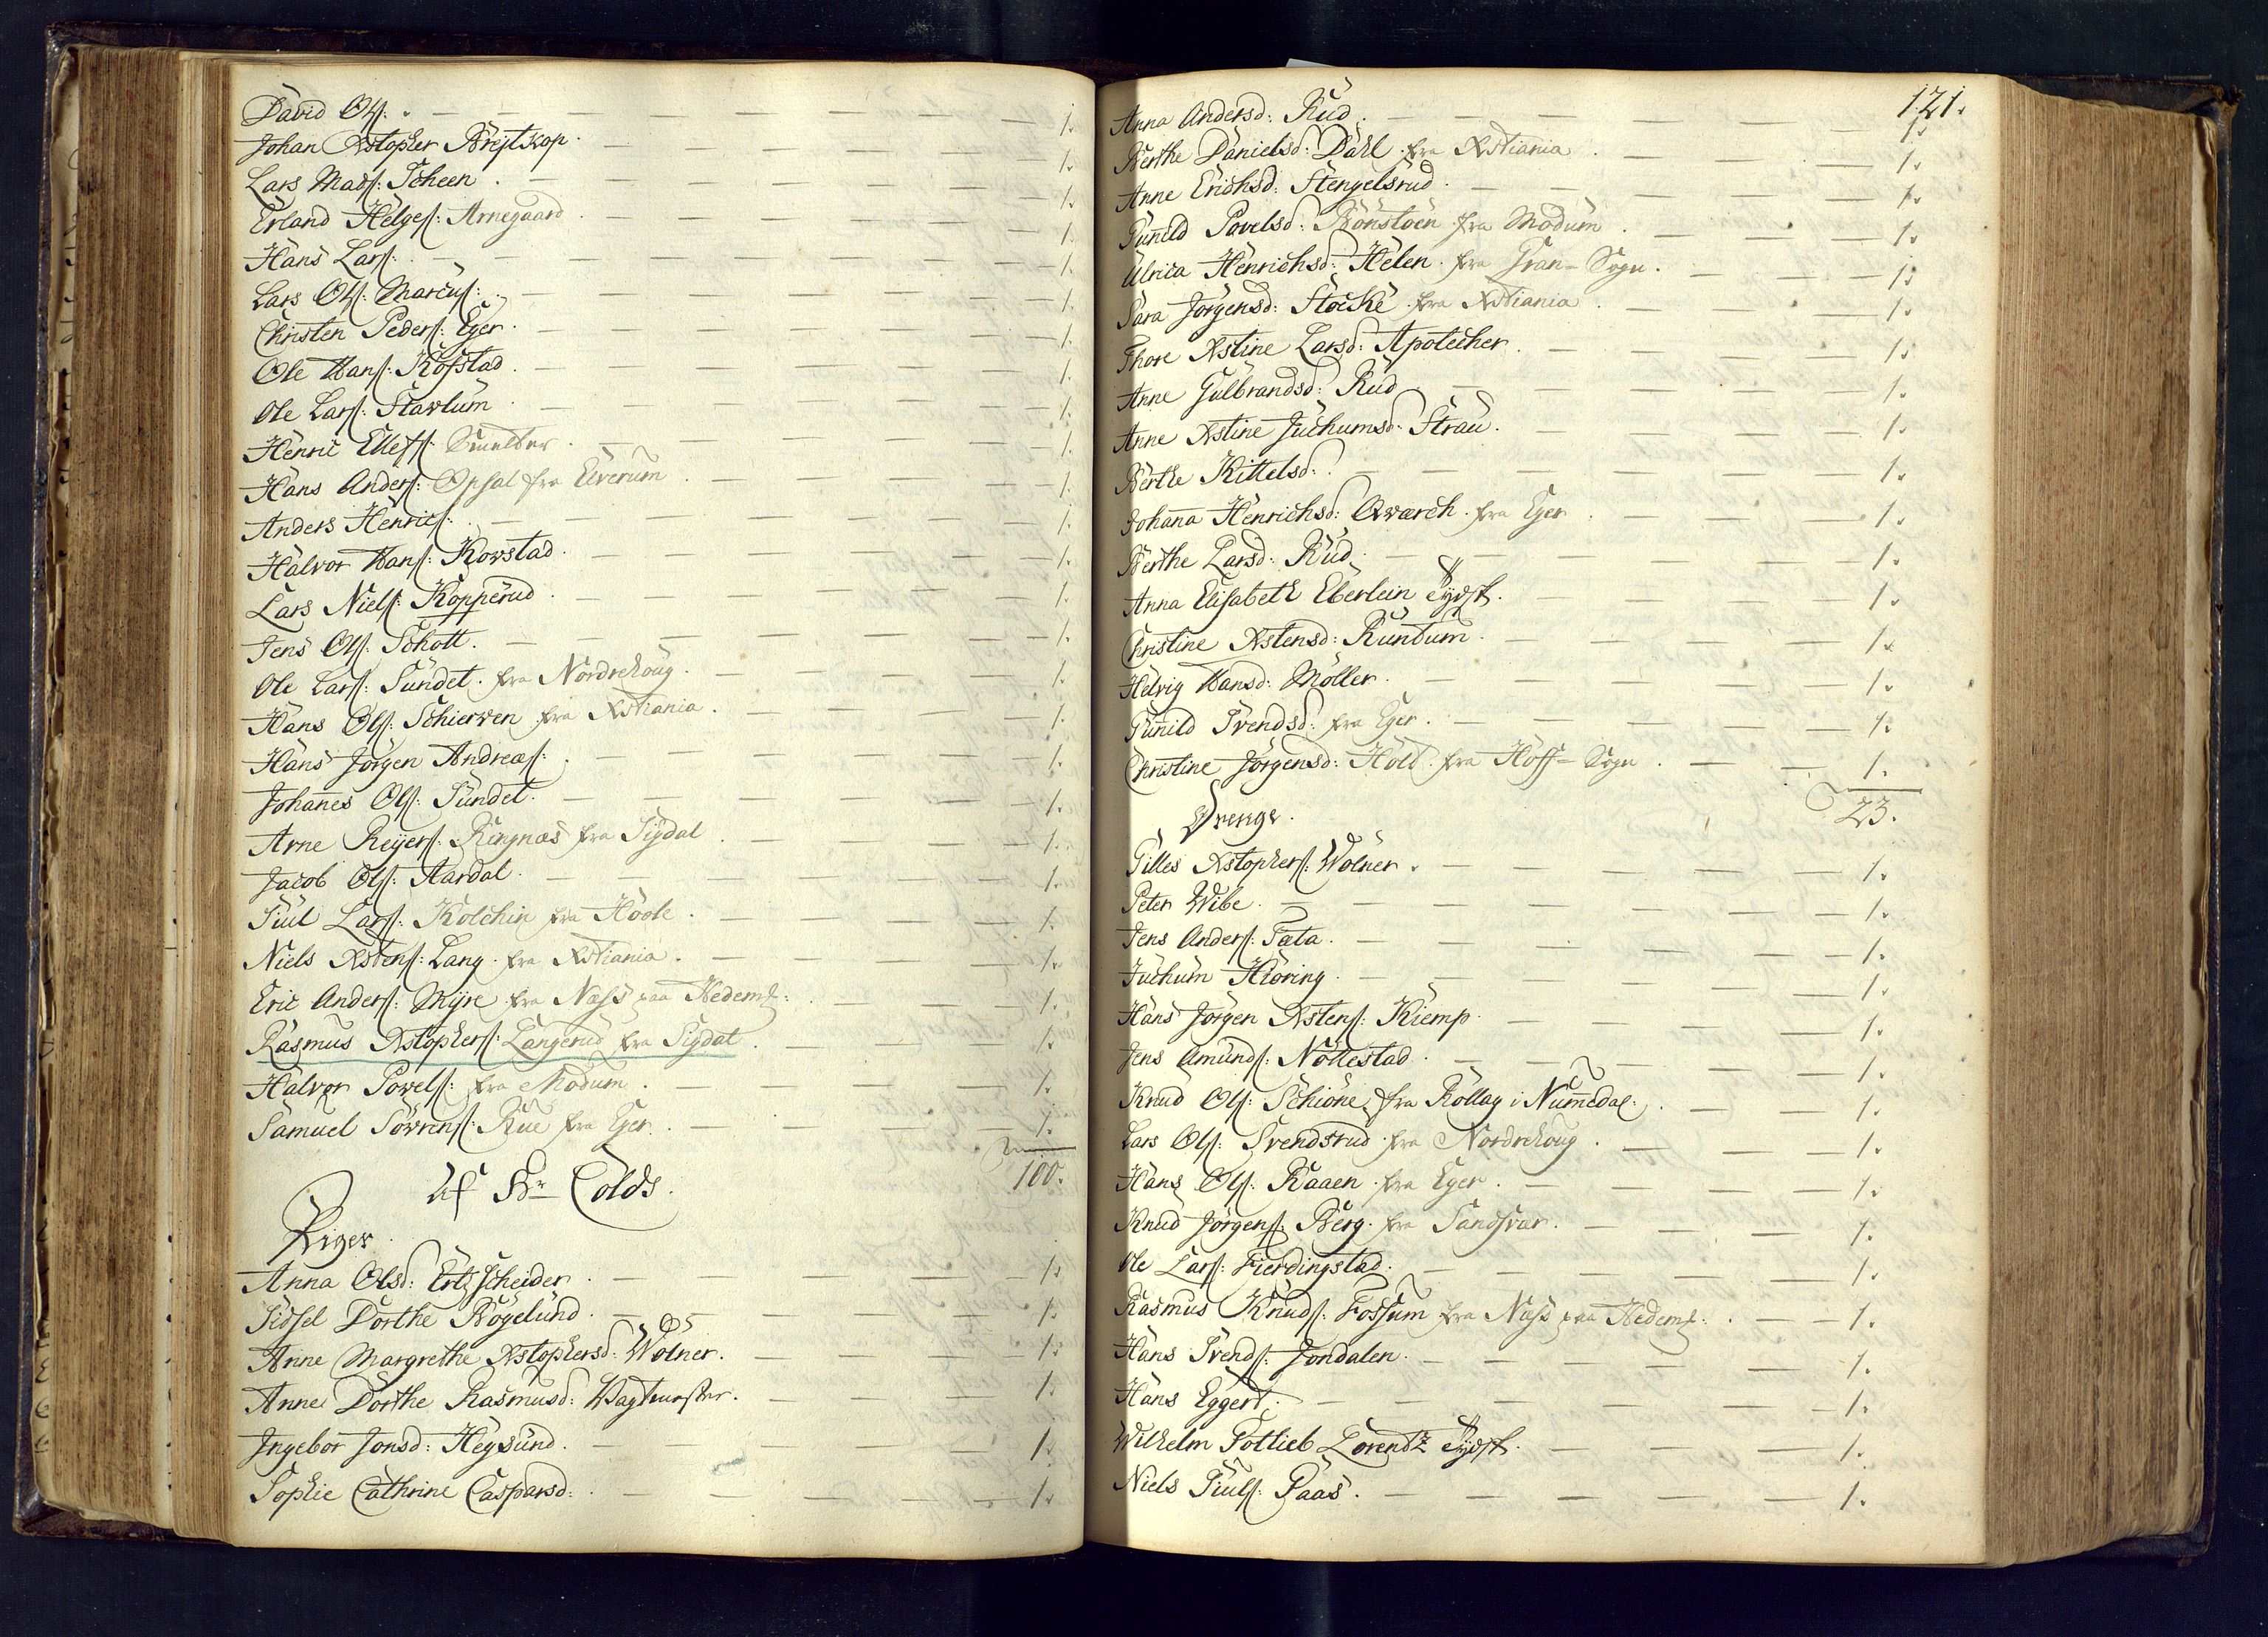 David Ols: — 1.
Johan Xstopher Brejtkop. — 1.
Lars Mads: Scheen. — 1.
Erland Helges: Arnegaard. — 1.
Hans Lars: — 1.
Lars Ols: Marcus: — 1.
Christen Peders: Eger. — 1.
Ole Hans: Kofstad. — 1.
Ole Lars: Stavlum. — 1.
Henric Ellefs: Smelter. — 1.
Hans Anders: Opsal fra Elverum. — 1.
Anders Henrics: — 1.
Halvor Hans: Kovstad. — 1.
Lars Niels: Kopperud. — 1.
Jens Ols: Schott. — 1.
Ole Lars: Sundet. fra Nordrehoug. — 1.
Hans Ols: Schierven fra Xstiania. — 1.
Hans Jörgen Andreas: — 1.
Johannes Ols: Sundet. — 1.
Arne Reijers: Ringnæs fra Sigdal. — 1.
Jacob Ols: Aardal. — 1.
Juul Lars: Kolchin fra Hoole. — 1.
Niels Xstens: Lang. fra Xstiania. — 1.
Eric Anders: Mÿre fra Næss paa Hedem: — 1.
Rasmus Xstophers: Langerud fra Sigdal. — 1.
Halvor Povels: fra Modum. — 1.
Samuel Sörrens: Rue fra Eger. — 1.
100.
Af Hr Colds.
Piger.
Anna Olsd: Ertzscheider. — 1.
Sidsel Dorthe Bögelund. — 1.
Anne Margrethe Xstophersd: Wölner. — 1.
Anne Dorthe Rasmusd: Vagtmester. — 1.
Ingebor Jonsd: Hegsund. — 1.
Sophie Cathrine Caspersd: — 1.
121.
Anna Andersd: Rud. — 1.
Berthe Danielsd: Dahl. fra Xstiania. — 1.
Anne Erichsd: Stengelsrud. — 1.
Gunild Povelsd: Bönstöen fra Modum. — 1.
Ulrica Henrichsd: Helen. fra Gran-Sogn. — 1.
Sara Jörgensd: Stocke. fra Xstiania. — 1.
Thore Xstine Larsd: Apotecher. — 1.
Anne Gulbrandsd: Rud. — 1.
Anne Xstine Juchumsd: Strau. — 1.
Berthe Kittelsd: — 1.
Johana Henrichsd: Qværch. fra Eger. — 1.
Berthe Larsd: Rud. — 1.
Anna Elisabeth Eberlein Tydsk. — 1.
Christine Xstensd: Runtum. — 1.
Helvig Hansd: Möller. — 1.
Gunild Svendsd: fra Eger. — 1.
Christine Jörgensd: Hold. fra Hoff-Sogn. — 1.
23.
Drenge.
Gilles Xstophers: Wölner. — 1.
Peter Wibe. — 1.
Jens Anders: Tata. — 1.
Juchum Hiöring. — 1.
Hans Jörgen Xstens: Kiemp. — 1.
Jens Amunds: Nöttestad. — 1.
Knud Ols: Schiöne, fra Rollag i Numedal. — 1.
Lars Ols: Svendsrud fra Nordrehoug. — 1.
Hans Ols: Raaen. fra Eger. — 1.
Knud Jörgens: Berg. fra Sandsvær. — 1.
Ole Lars: Fierdingstad. — 1.
Rasmus Knuds: Fossum fra Næss paa Hedem: — 1.
Hans Svends: Jondalen. — 1.
Hans Eggert. — 1.
Wilhelm Gotlieb Lorendtz Tydsk. — 1.
Niels Juuls: Paas. — 1.